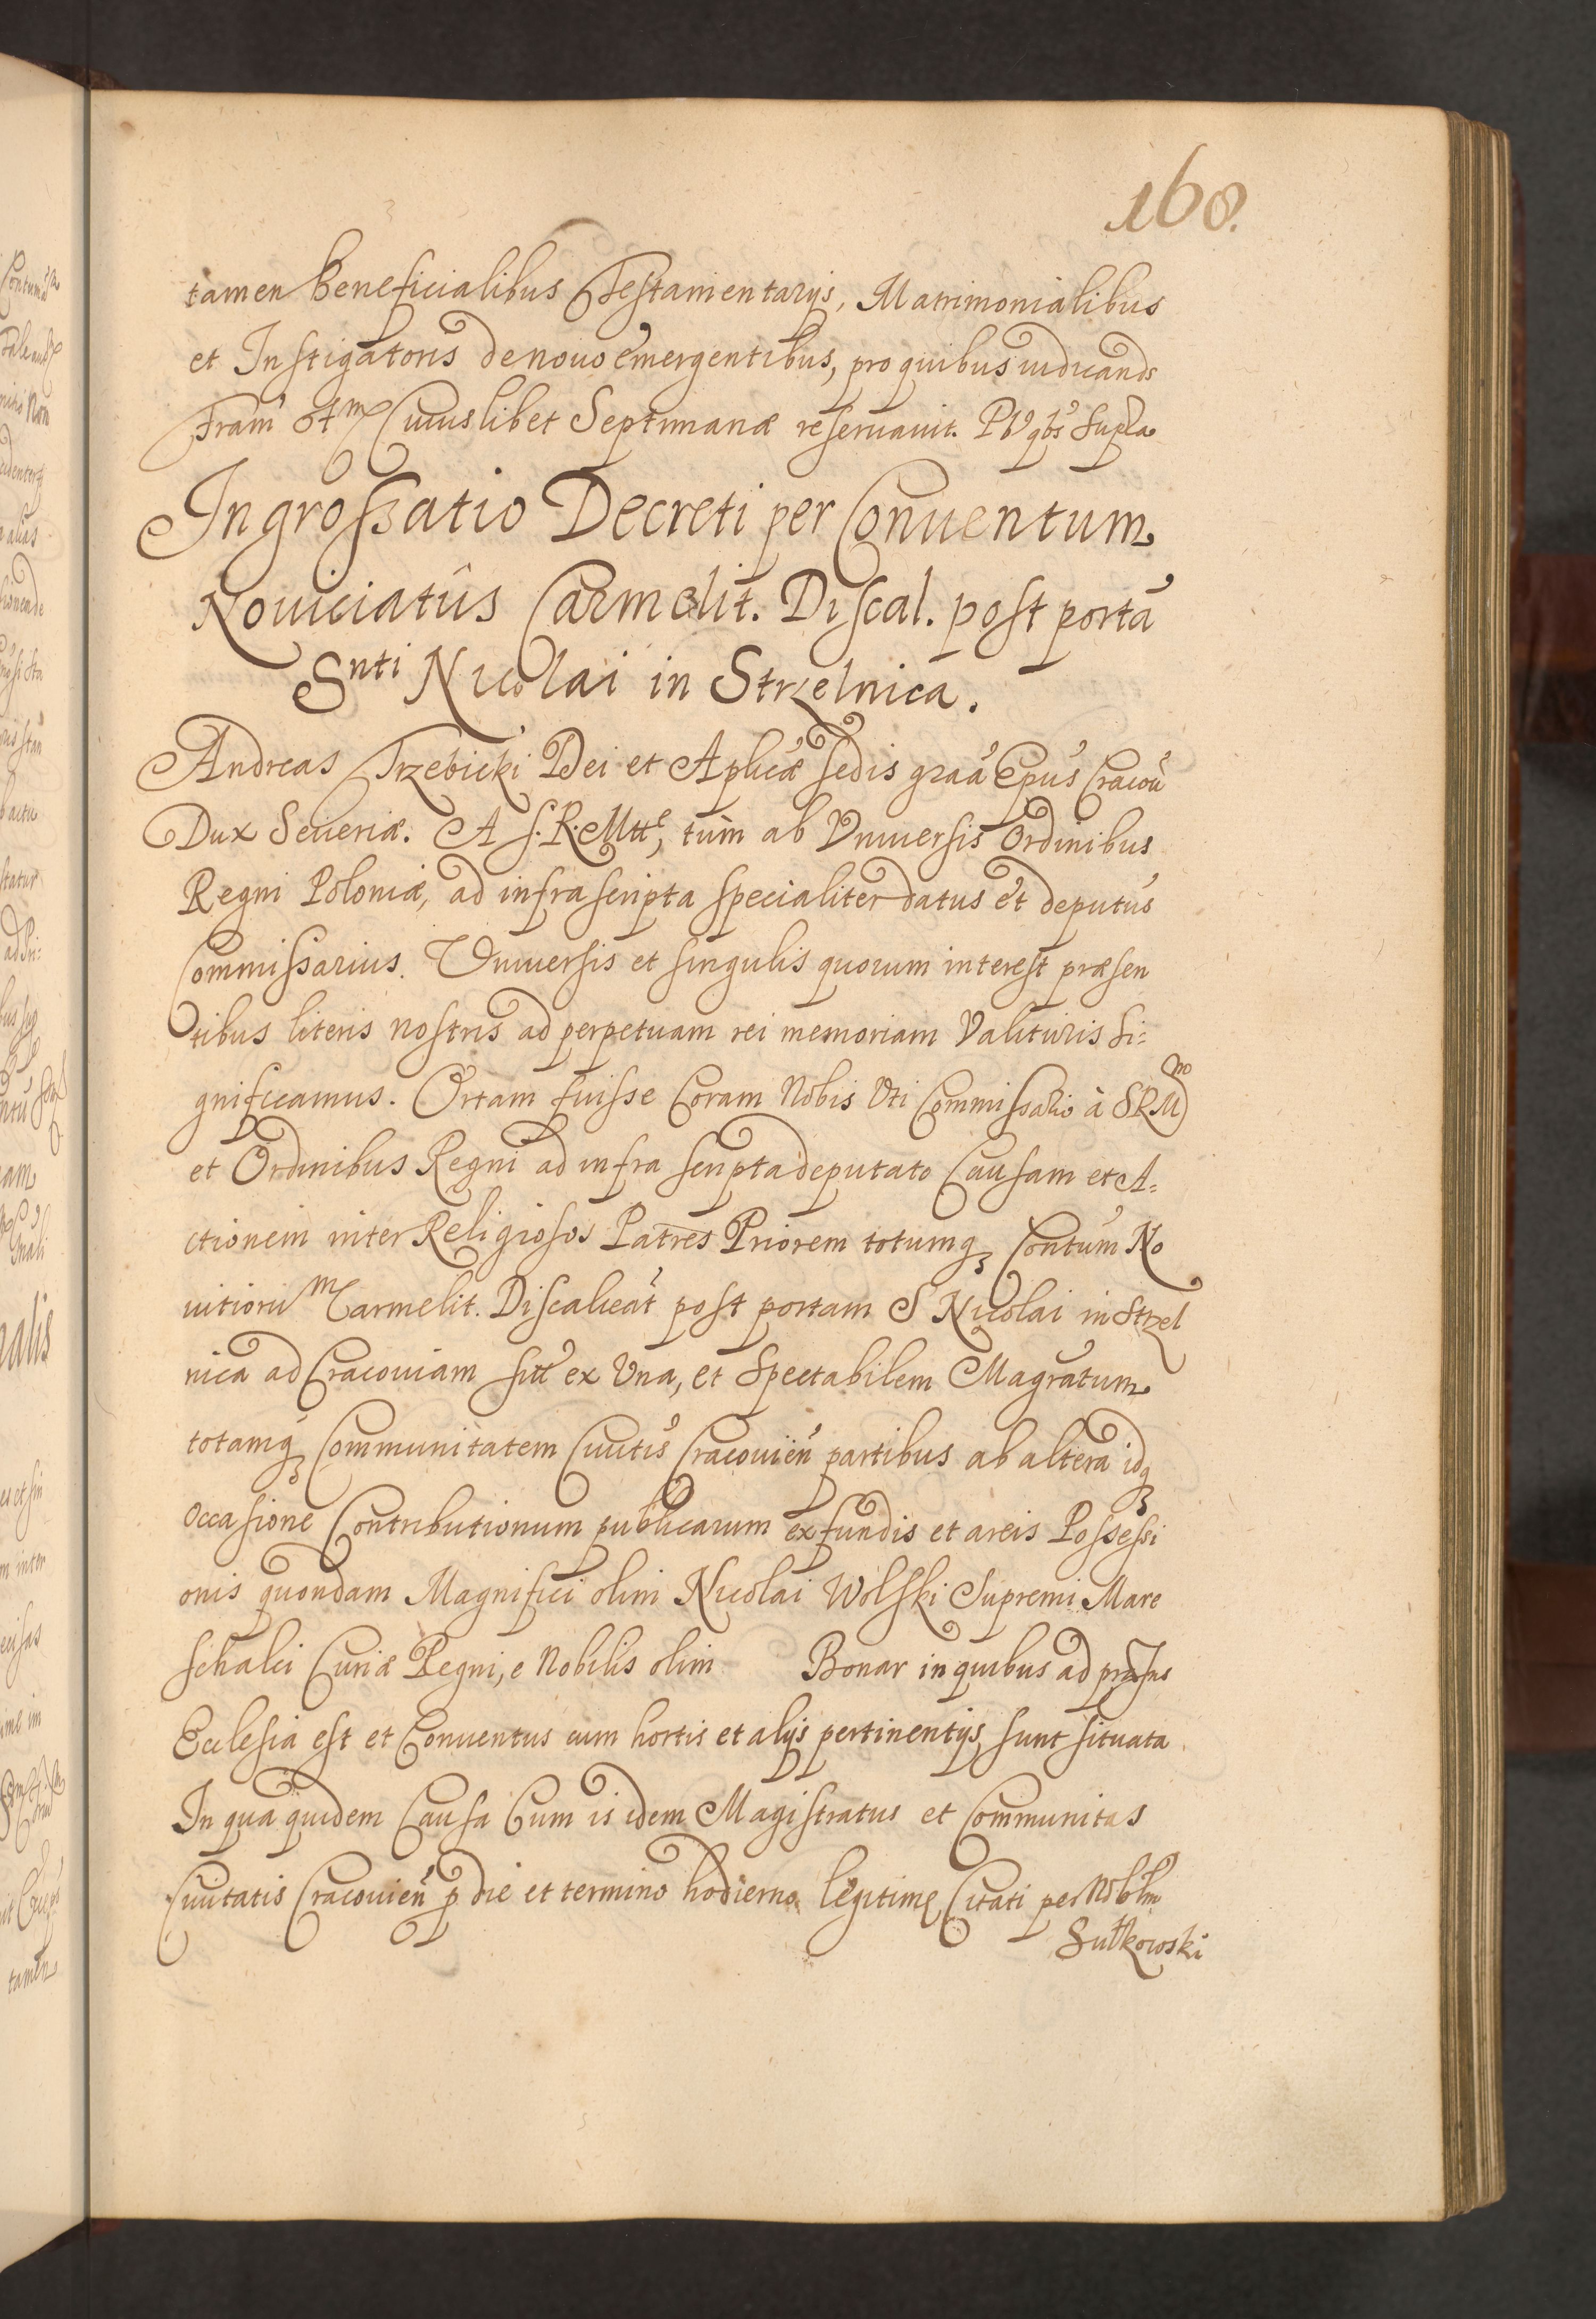 168.
tamen Beneficialibus Testamentarijs, Matrimonialibus
et Instigatoris de novo emergentibus, pro quibus iudicands
Cuiuslibet Septimanæ reseruauit.
Ingrossatio Decreti per Conuentum
Nouiciatûs Carmelit. Discal. post portã
Snti Nicolai in Strzelnica.
Andreas Trzebicki Dei et Aplicæ sedis graã Epus Cracou
Dux Seueriæ. A S. R. Mtte, tùm ab Vniuersis Ordinibus
Regni Poloniæ, ad infrascripta specialiter datus et deputus
Commissarius. Vniuersis et singulis quorum interest præsen
tibus literis nostris ad perpetuam rei memoriam Valituris si:
gnificamus. Ortam fuisse Coram Nobis Vti Commissario à SRM
et Ordinibus Regni ad infra scripta deputato Causam et A:
ctionem inter Religiosos Patres Priorem totumq Contum No
uitioru Carmelit. Discalceat post portam S Nicolai in Strzel
nica ad Cracouiam sitt ex Vna, et Spectabilem Magratum
totamq Communitatem Ciuitis Cracouien partibus ab altera idq
occasione Contributionum publicarum ex fundis et areis Possessi
onis quondam Magnifici olim Nicolai Wolski Supremi Mare
schalci Curiæ Regni, e Nobilis olim Bonar in quibus ad præsns
Ecclesia est et Conuentus cum hortis et alijs pertinentijs, sunt situata
In qua quidem Causa Cum is idem Magistratus et Communitas
Ciuitatis Cracouien p die et termino hodierno legitime Citati per Nobilm
Sułkowski